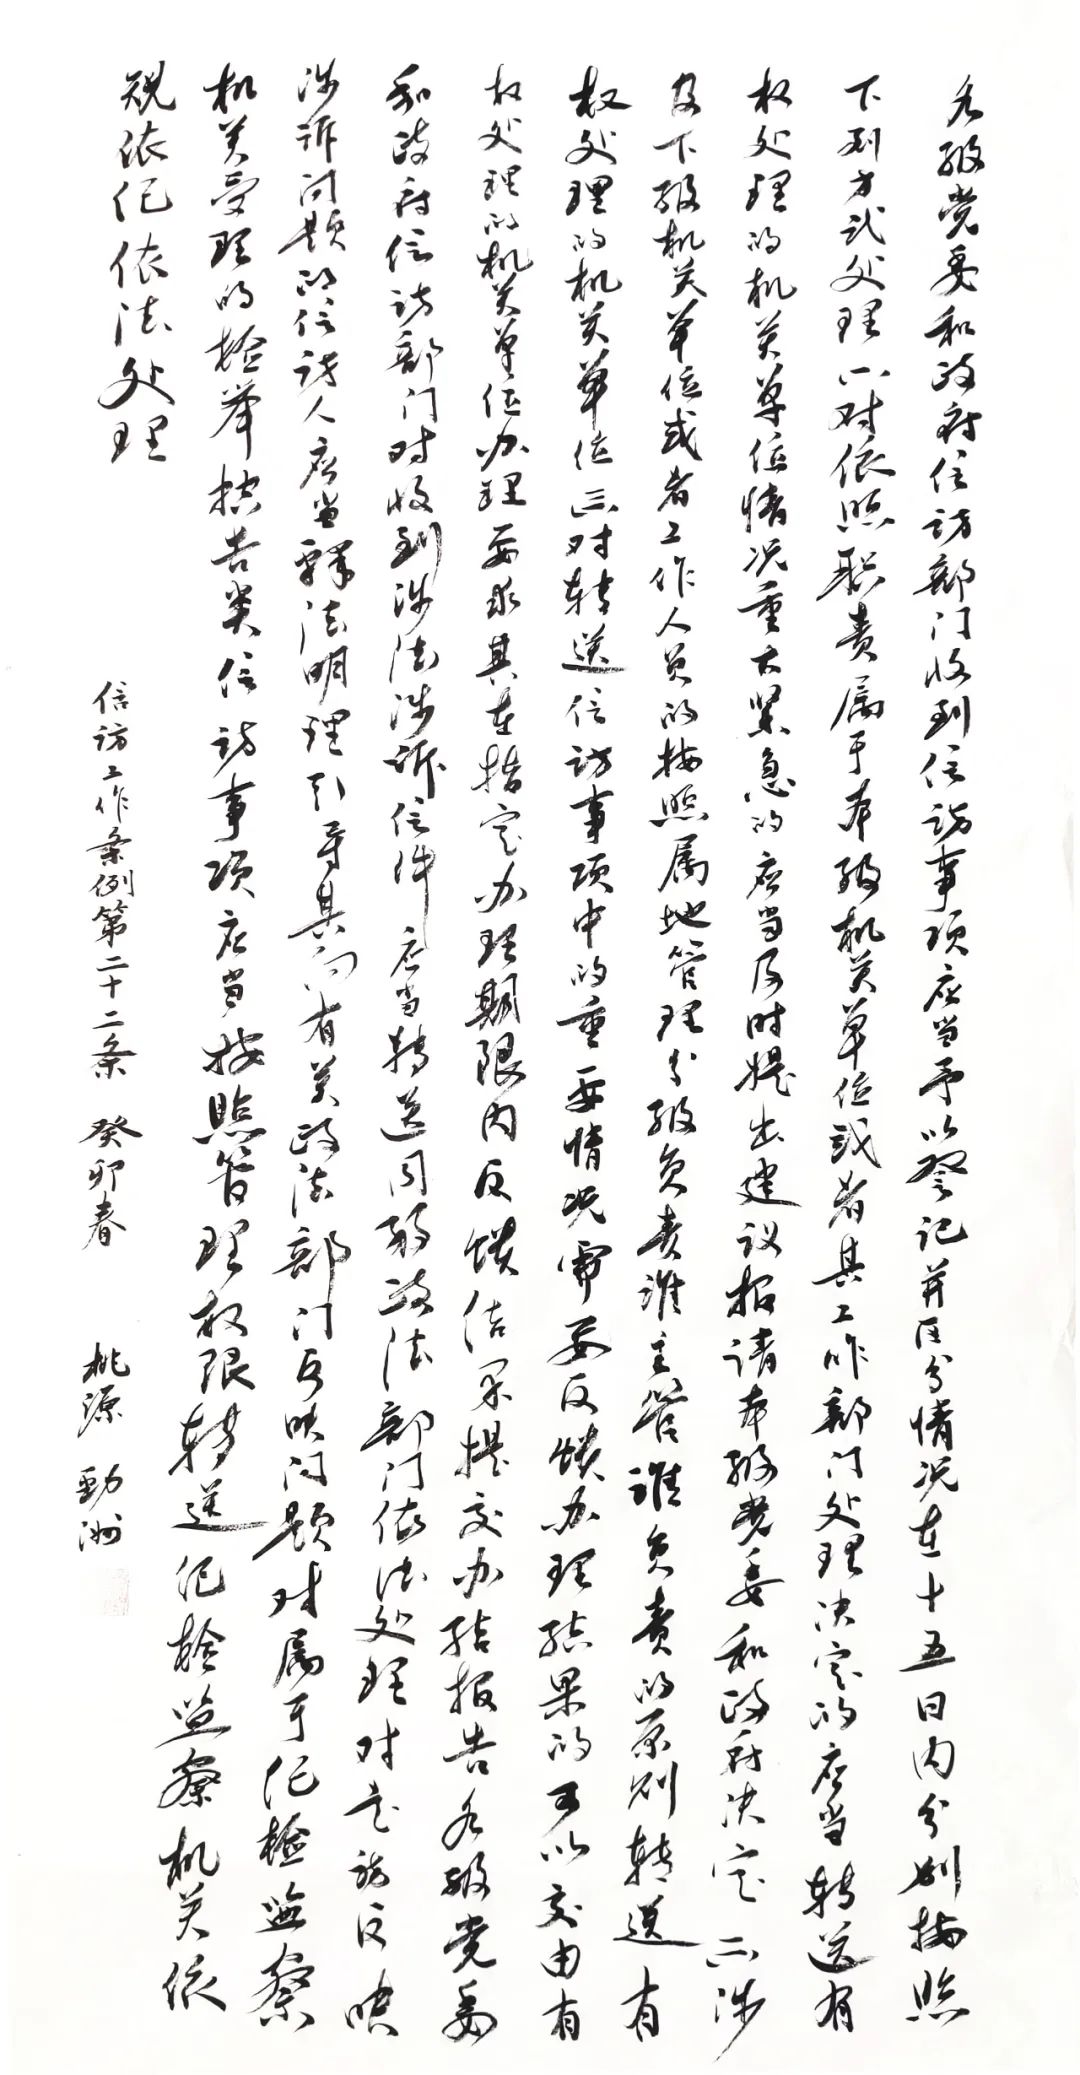 各级党委和政府信访部门收到信访事项应当予以登记并区分情况在十五日内分别按照
下列方式处理一对依照职责属于本级机关单位或者其工作部门处理决定的应当转送有
权处理的机关单位情况重大紧急的应当及时提出建议报请本级党委和政府决定二涉
及下级机关单位或者工作人员的按照属地管理分级负责谁主管谁负责的原则转送有
权处理的机关单位三对转送信访事项中的重要情况需要反馈办理结果的可以交由有
权处理的机关单位办理要求其在指定办理期限内反馈结果提交办结报告各级党委
和政府信访部门对收到涉法涉诉信件应当转送同级政法部门依法处理对走访反映
涉诉问题的信访人应当释法明理引导其向有关政法部门反映问题对属于纪检监察
机关受理的检举控告类信访事项应当按照管理权限转送纪检监察机关依
规依纪依法处理
信访工作条例第二十二条 癸卯春 桃源 勁洲